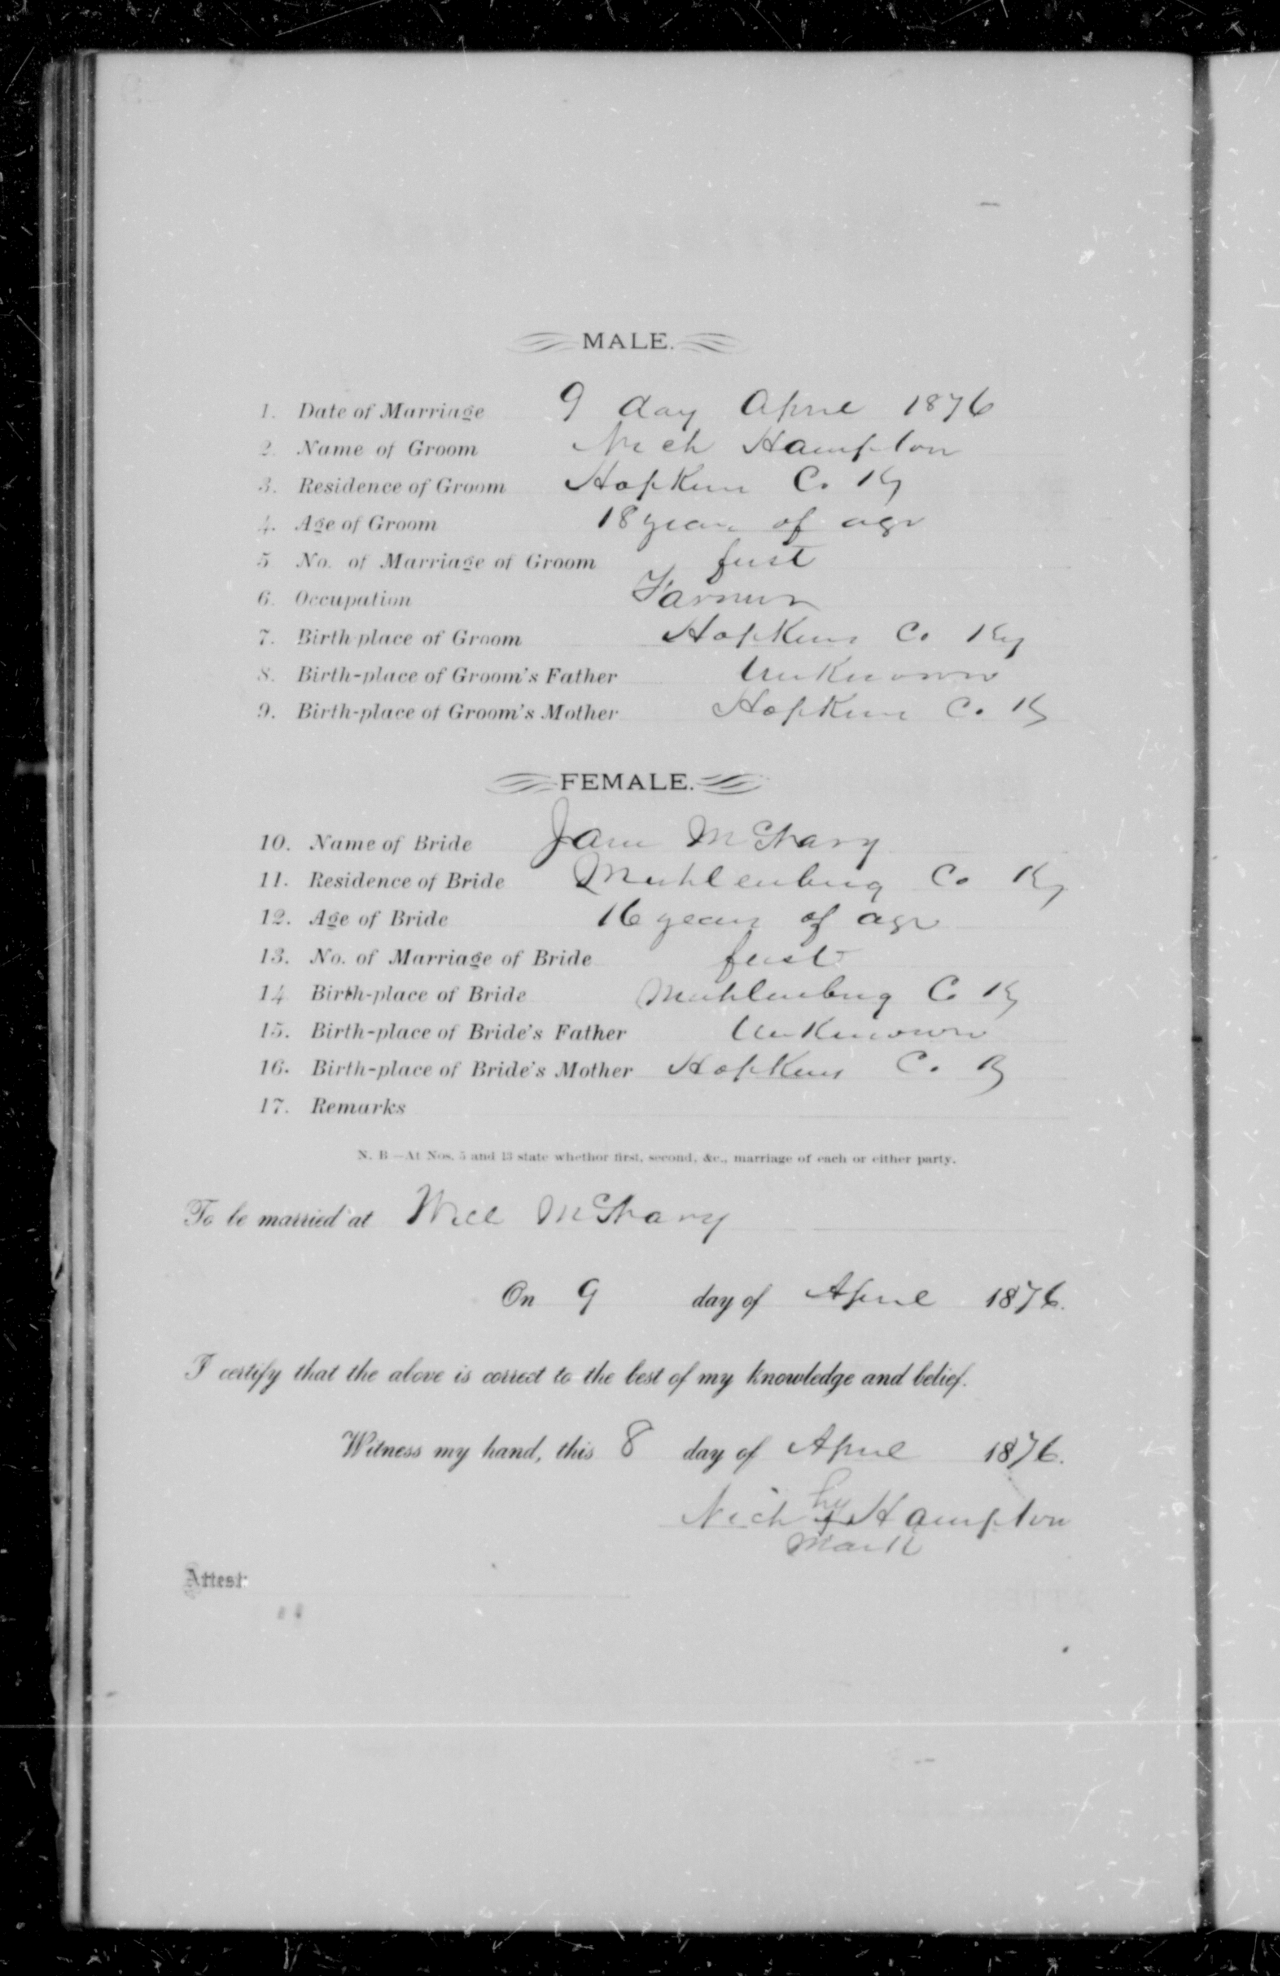 MALE.
1. Date of Marriage 9 day April 1876
2. Name of Groom Nich Hampton
3. Residence of Groom Hopkins Co. Ky
4. Age of Groom 18 years of age
5 No. of Marriage of Groom first
6. Occupation Farmer
7. Birth-place of Groom Hopkins Co. Ky
8. Birth-place of Groom's Father Unknown
9. Birth-place of Groom's Mother Hopkins Co. Ky
FEMALE.
10. Name of Bride Jane McGhary
11. Residence of Bride Muhlenburg Co Ky
12. Age of Bride 16 years of age
13. No. of Marriage of Bride first
14 Birth-place of Bride Muhlenburg Co Ky
15. Birth-place of Bride's Father Unknown
16. Birth-place of Bride's Mother Hopkins Co. Ky
17. Remarks
N. B—At Nos. 5 and 13 state whether first, second, &c., marriage of each or either party.
To be married at Will McGhary
On 9 day of April 1876.
I certify that the above is correct to the best of my knowledge and belief.
Witness my hand, this 8 day of April 1876.
his
Nich x Hampton
mark
Attest: